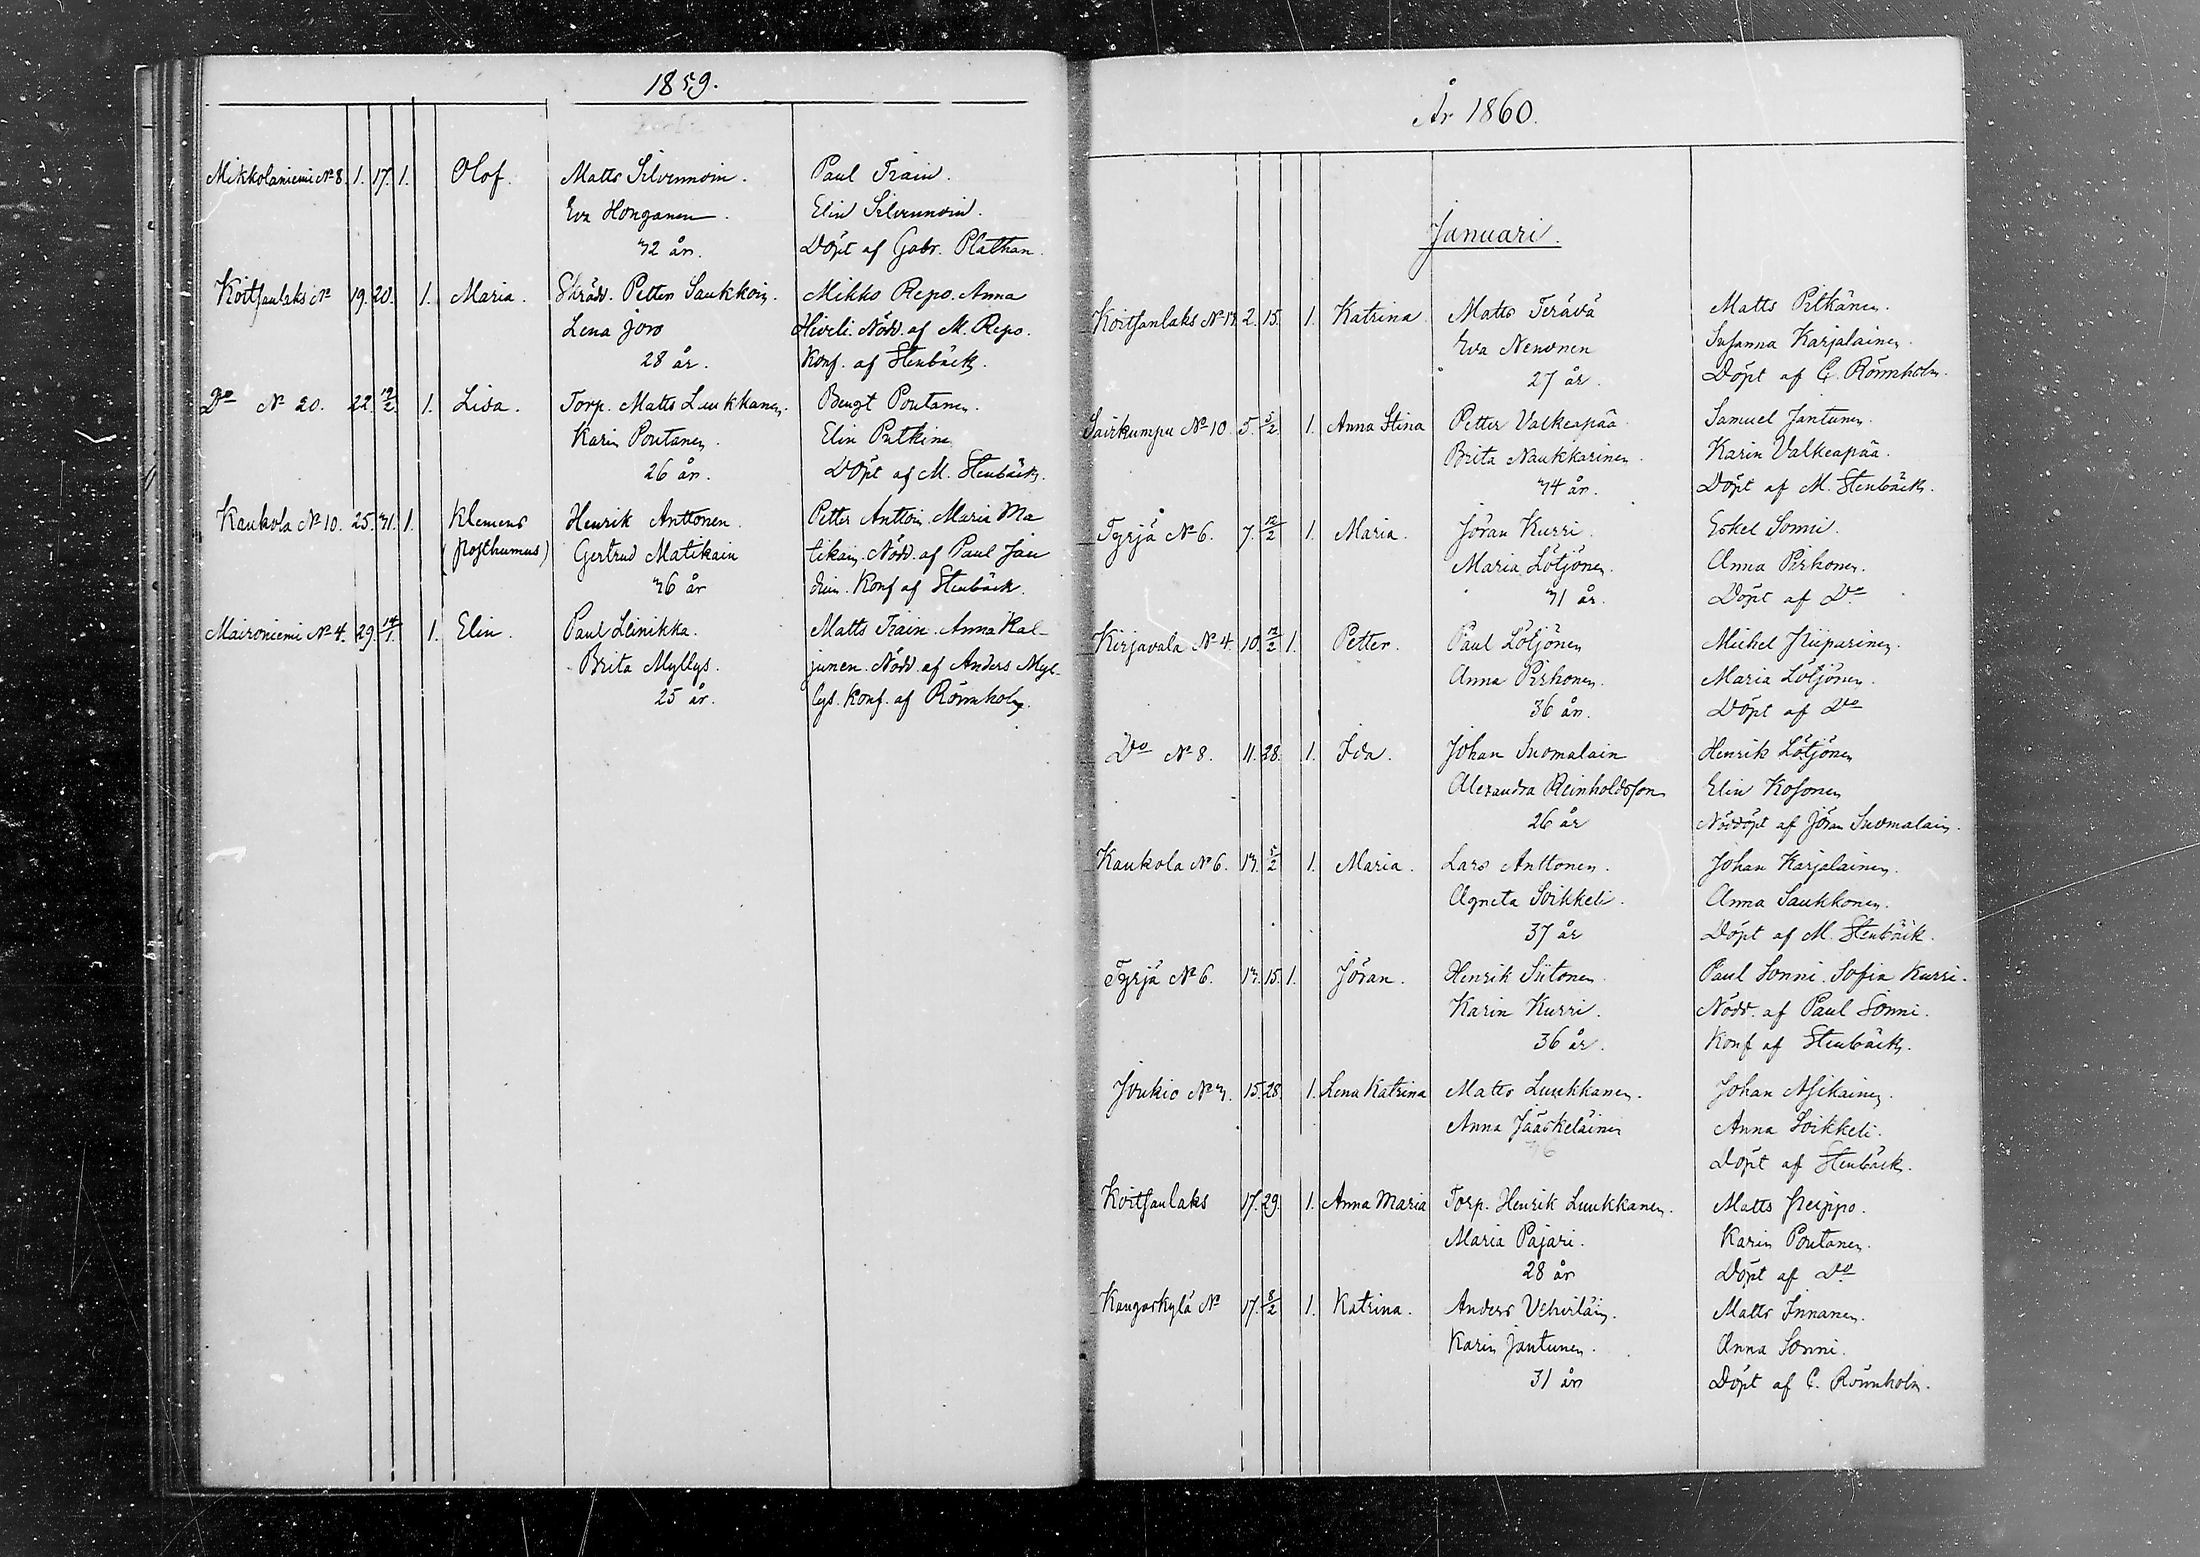 1859.
Mikkolaniemi No 8. 1. 17. 1. Olof. Matts Silvennoin. Paul Train.
Eva Honganen. Elin Silvennoin.
32 år. Döpt af Gabr. Plathan.
Koitsanlaks No 19. 20. 1. Maria. Skrädd. Petter Saukkoin. Mikko Repo. Anna
Lena Joro Hirveli. Nödd. af M. Repo.
28 år. Konf. af Stenbäck.
Do No 20. 22. 12/2. 1. Lisa. Torp. Matts Luukkanen. Bengt Poutanen.
Karin Poutanen. Elin Putkin
26 år. Döpt af M. Stenbäck.
Kaukola No 10. 25. 31. 1. Klemens Henrik Anttonen. Petter Anttoin. Maria Ma
(posthumus) Gertrud Matikain tikain. Nödd. af Paul Jau
36 år Konf af Stenbäck.
Maironiemi No 4. 29. 14/1. 1. Elin. Paul Leinikka. Matts Train. Anna Kal-
Brita Myllys. junen. Nödd. af Anders Myl-
25 år. lys. Konf. af Rönnholm.
År 1860.
Januari.
Koitsanlaks No 13. 2. 15. 1. Katrina Matts Terävä Matts Pitkänen.
Eva Nenonen Susanna Karjalainen.
27 år. Döpt af C. Rönnholm.
Sairkumpu No 10. 5. 5/2. 1. Anna Stina Petter Valkeapää Samuel Jantunen.
Brita Naukkarinen. Karin Valkeapää.
34 år. Döpt af M. Stenbäck.
Tyrjä No 6. 7. 12/2 1. Maria. Jöran Kurri. Eskel Sonni.
Maria Lötjönen. Anna Pirhonen.
31 år. Döpt af Do
Kirjavala No 4. 10. 12/2 1. Petter. Paul Lötjönen Michel Piiparinen.
Anna Pirhonen. Maria Lötjönen.
36 år. Döpt af Do
Do No 8. 11. 28. 1. Ida. Johan Suomalain Henrik Lötjönen
Alexandra Reinholdsson Elin Kosonen
26 år Nöddöpt af Jöran Suomalain.
Kaukola No 6. 13. 5/2 1. Maria. Lars Anttonen. Johan Karjalainen.
Agneta Soikkeli. Anna Saukkonen.
37 år Döpt af M. Stenbäck.
Tyrjä No 6. 13. 15. 1. Jöran. Henrik Siitonen. Paul Sonni. Sofia Kurri.
Karin Kurri. Nödd. af Paul Sonni.
36 år. Konf af Stenbäck.
Joukio No 3. 15. 28. 1. Lena Katrina Matts Luukkanen. Johan Asikainen.
Anna Jääskeläinen Anna Soikkeli.
36 Döpt af Stenbäck.
Koitsanlaks 17. 29. 1. Anna Maria Torp. Henrik Luukkanen. Matts Peippo.
Maria Pajari. Karin Poutanen.
28 år Döpt af Do
Kangaskylä No 17. 8/2 1. Katrina. Anders Vehviläin. Matts Innanen.
Karin Jantunen. Anna Sonni.
31 år Döpt af C. Rönnholm.